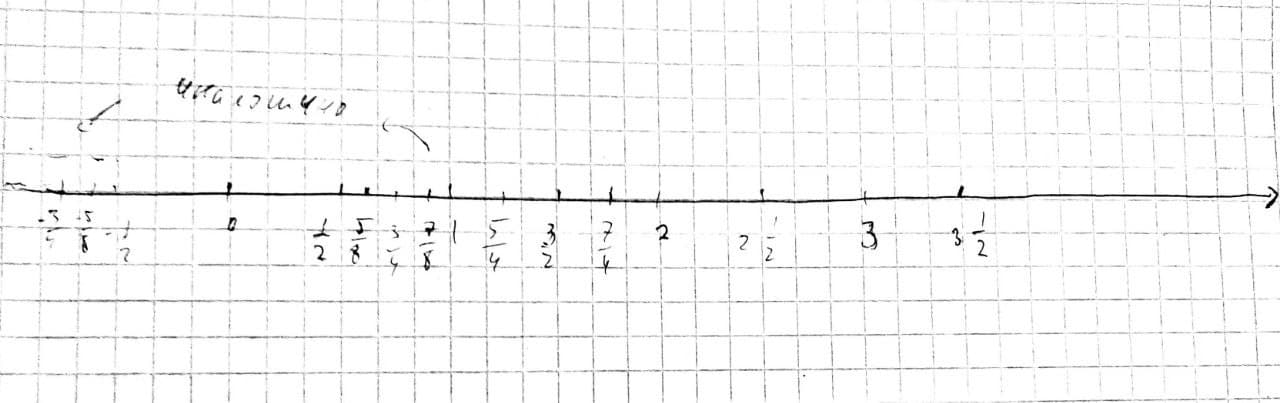 аналогично
-3/4 -5/8 -1/2 0 1/2 5/8 3/4 7/8 1 5/4 3/2 7/4 2 2 1/2 3 3 1/2